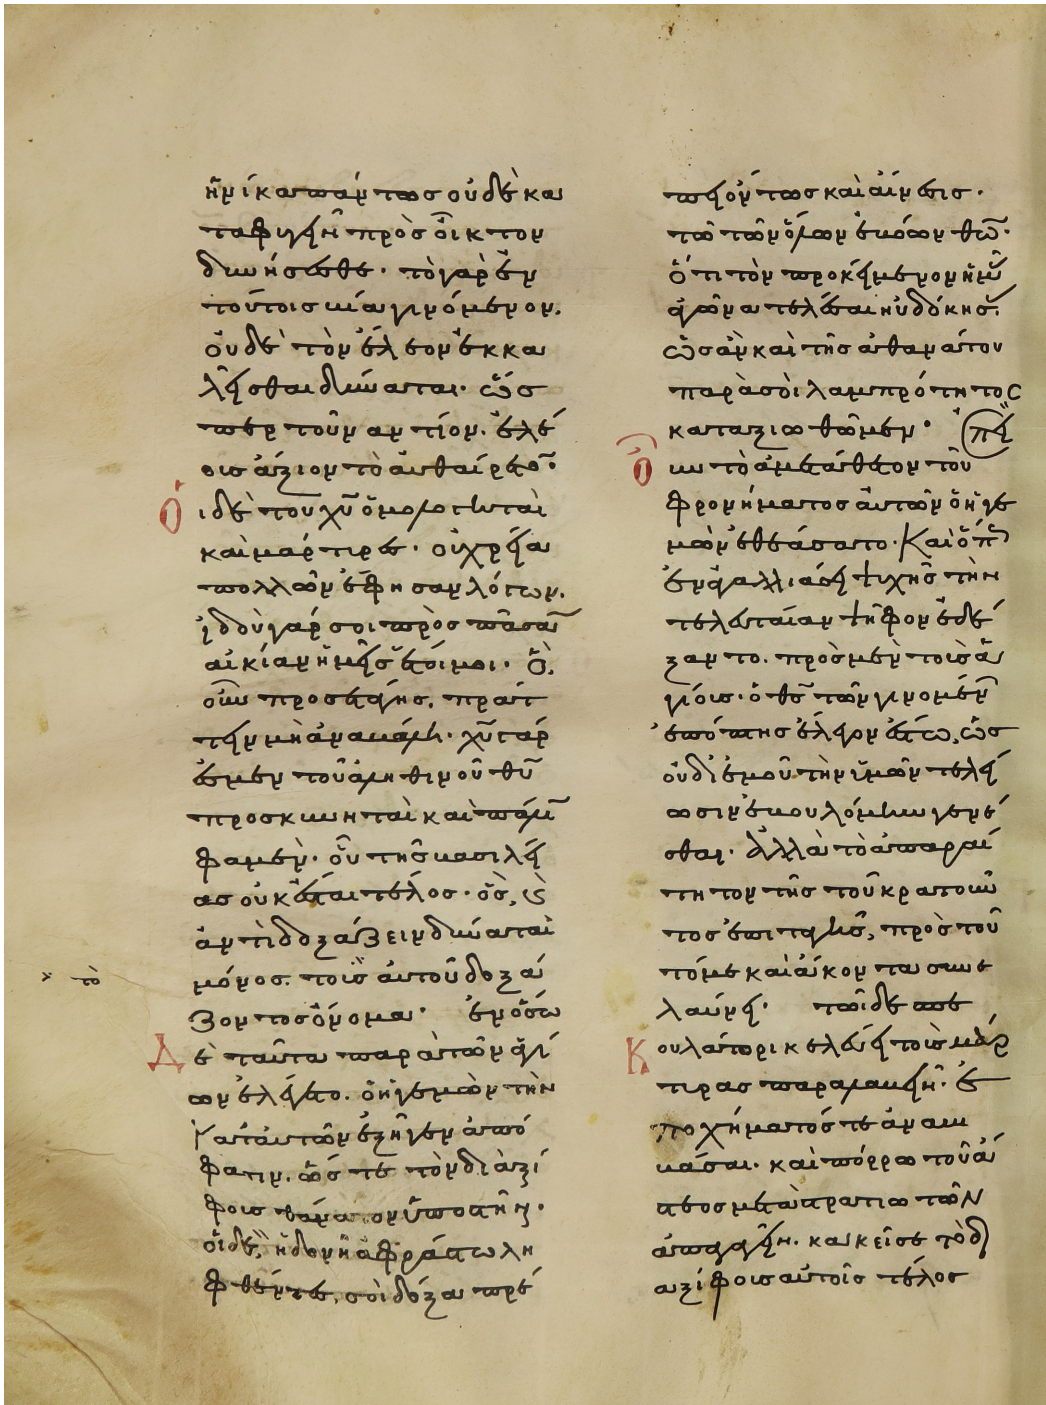 ἡνίκα παντως οὐδὲ κα
ταφυγεῖν πρὸς οἶκτον
δυνήσεσθε· τὸ γὰρ ἐν
τούτοις βία γινόμενον,
οὐδὲ τὸν ἔλεον ἐκκα
λεῖσθαι δύναται· ὥσ
περ τοὐναντίον. ἐλέ
οις ἄξιον τὸ αὐθαίρετο̄·
Οἱ δὲ του χῦ ὁμολογηταὶ
καὶ μάρτυρες· οὐ χρεία
πολλῶν ἔφησαν λόγων.
ἰδοὺ γάρ σοι πρὸς πᾶσᾱ
αἰκίαν ἡμεῖς ἕτοιμοι· ὃ,
οὖν προσετάγης, πράτ
τειν μὴ ἀναμένῃ· χῦ γάρ
ἐσμεν τοῦ ἀληθινοῦ θῦ
προσκυνηταὶ καὶ
φαμεν· οὗ τῆς βασιλεί
ας οὐκ ἔσται τέλος· ὃς, καὶ
ἀντιδοξάζειν δύναται
μόνος. τοὺς αὐτοῦ δοξά
ζοντος ὄνομα· ἐν ὅσω
Δὲ ταῦτα παρὰ τῶν ἁγί
ων ἐλέγετο. ὁ ἡγεμὼν τὴν
κατ αὐτῶν ἐξῆγεν ἀπό
φασιν. ὥστε τὸν διὰ ξί
φους θάνατον ὑποστῆναι·
οἱ δὲ, ἡδονῆ ἀφράστω λη
φθέντες, σοὶ δόξα πρέ
πει ὄντως καὶ αἴνεσις·
τῶ τῶν ὅλων ἐβόων θῶ·
ὅτι τὸν προκείμενον ἡμῖν
ἀγῶνα τελέσαι ηὐδόκησας.
ὡς ἂν καὶ τῆς ἀθανάτου
παρὰ σοὶ λαμπρότητος
καταξιωθῶμεν· ἐπεὶ
Οὖν τὸ ἀμετάθετον τοῦ
φρονήματος αὐτῶν ὁ ἡγε
μὼν ἐθεάσατο. καὶ ὅπως
ἐν ἀγαλλιάσει ψυχῆς τὴν
τελευταίαν ψῆφον ἐδέ
ξαντο. πρὸς μὲν τοὺς ἁ
γίους· ὁ θς τῶν γινομένων
ἐπόπτης ἔλεγεν ἔστω, ὡς
οὐδ' ἐμοῦ τὴν ὑμῶν τελεί
ωσιν ἐβουλόμην γενέ
σθαι· ἀλλὰ τὸ ἀπαραί
τητον τῆς τοῦ κρατοῦν
τος ἐπιταγῆς, πρὸς τοῦ
τό με καὶ ἄκοντα συνε
λαύνει· τῶ δὲ σπε
Κουλάτορι κελεύει τοὺς μάρ
τυρας παραλαβεῖν· ἐ
ποχήματός τε ἀναβι
βάσαι· καὶ πόρρω τοῦ ἄ
στεος μετὰ στρατιωτῶν
ἀπαγαγεῖν. κακεῖσε τὸ δ
α ξίφους αὐτοῖς τέλος
τὸ